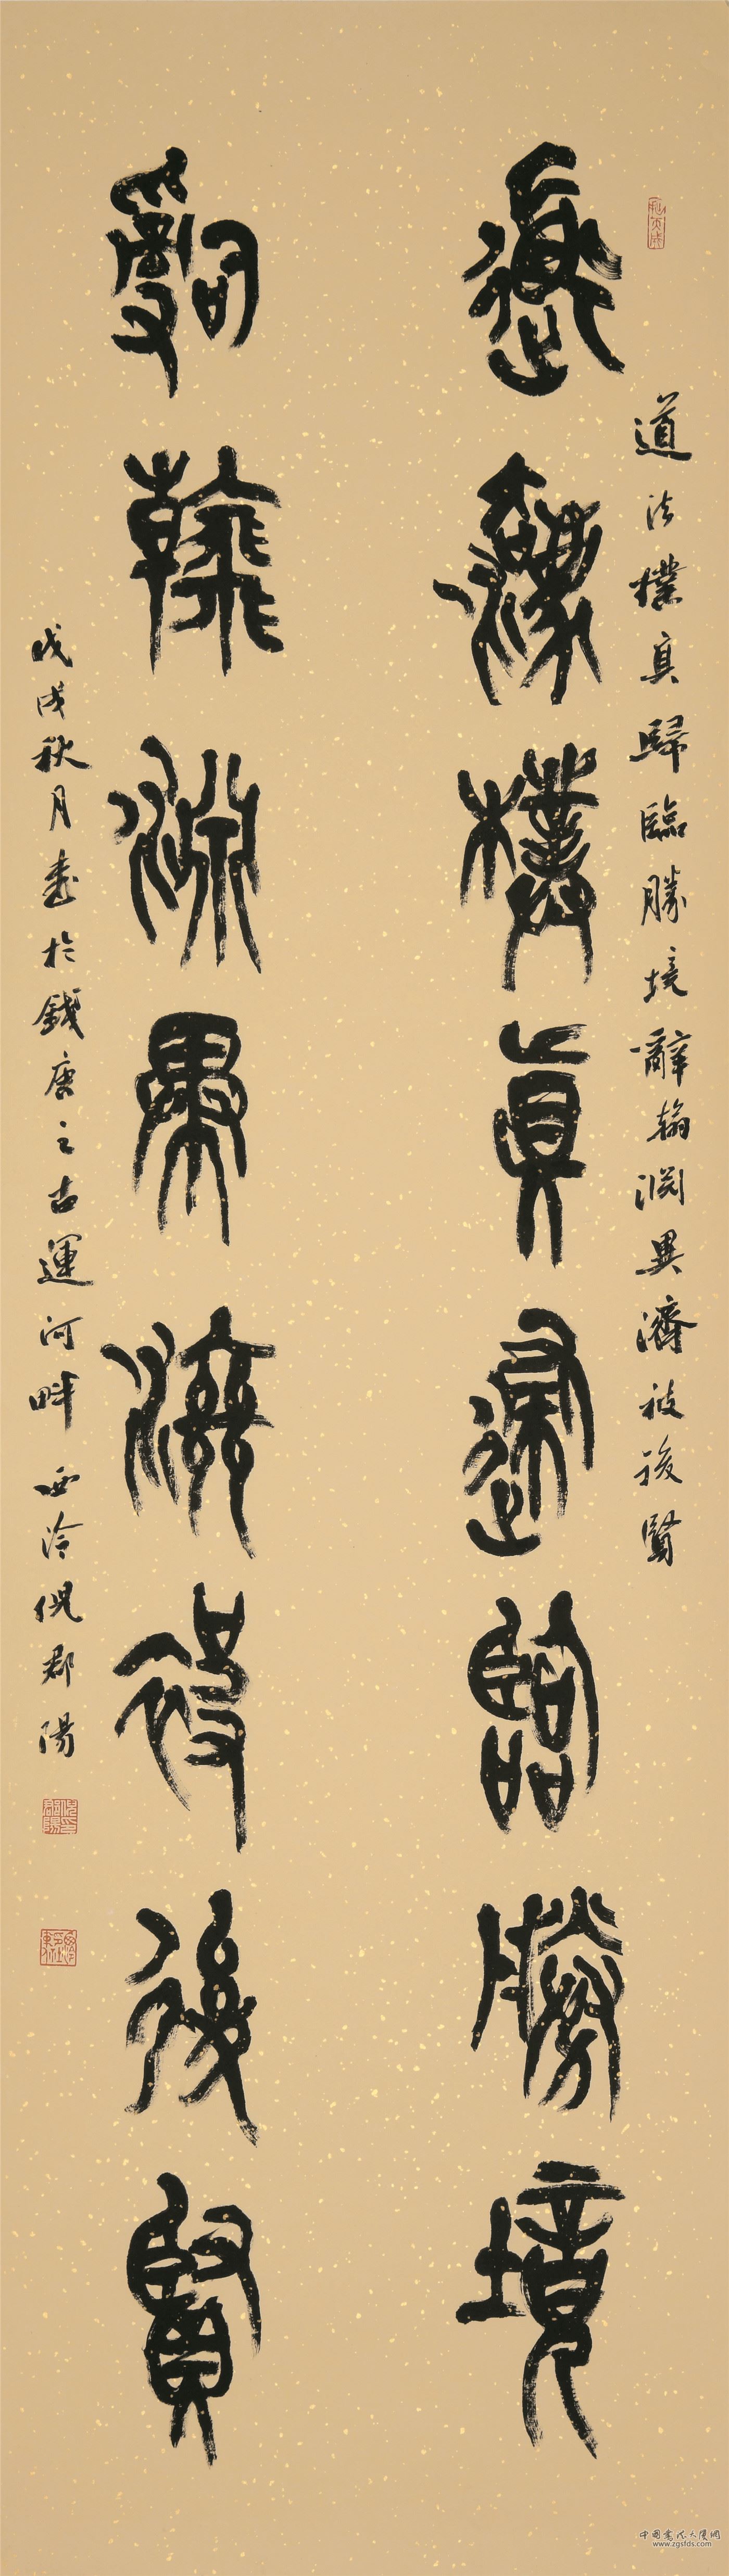 道法樸真歸臨勝境辭翰淵異濟被後賢
道法樸真歸臨勝境
辭翰淵異濟被後賢
戊戌秋月書於錢唐之古運河畔西泠倪郡陽
中國書法大廈網
www.zgsfds.com